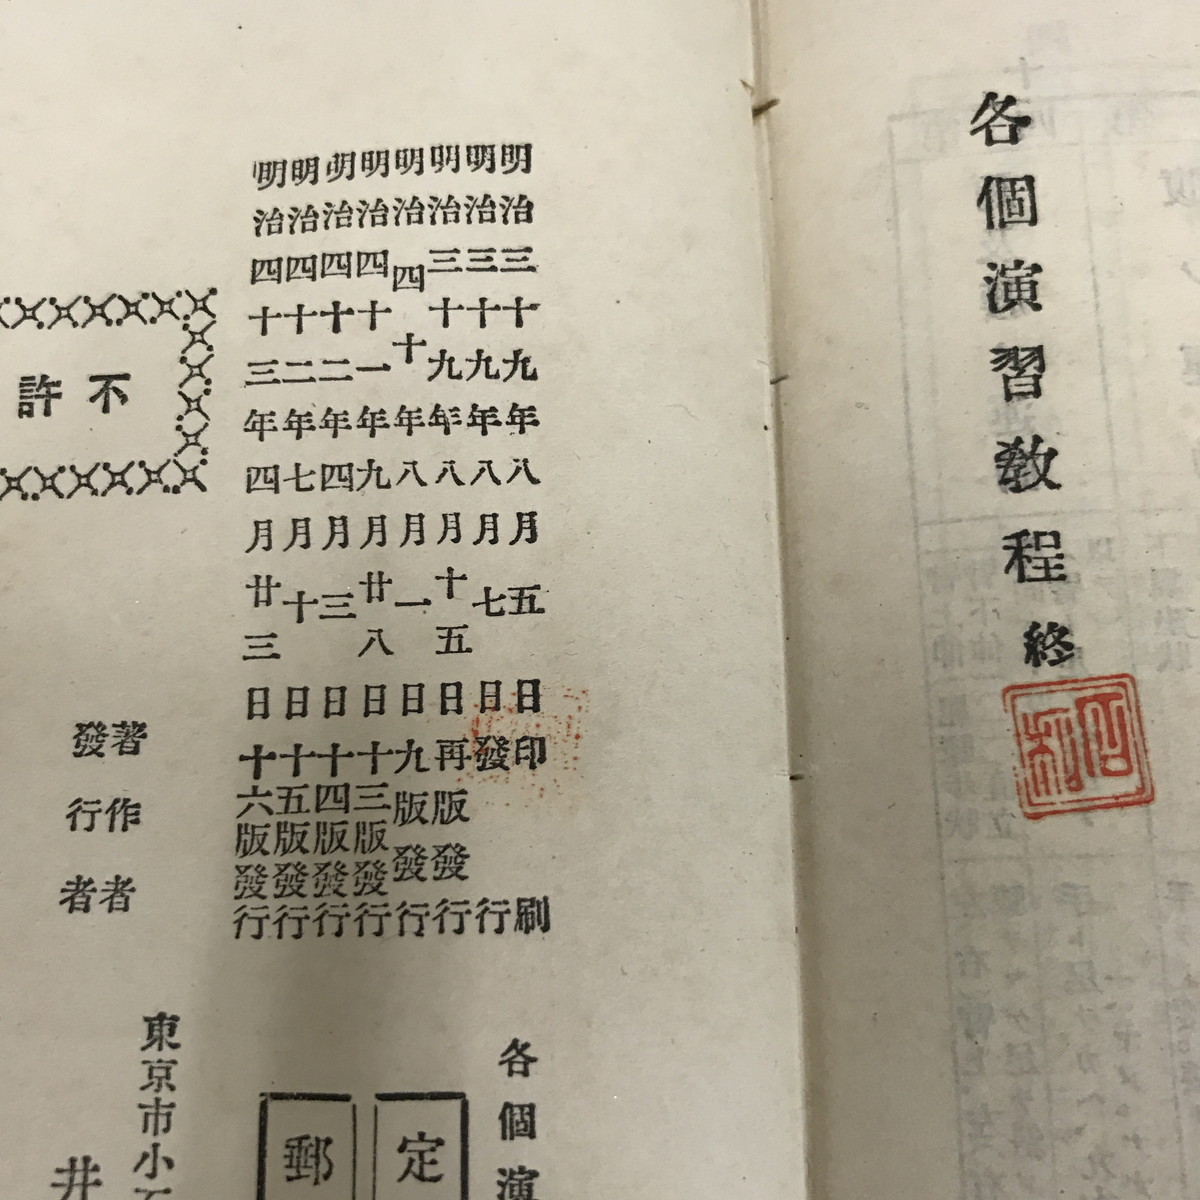 各個演習教程終
明治三十九年八月五日印刷
明治三十九年八月七日發行
明治三十九年八月十五日再版發行
明治四十年八月一日九版發行
明治四十一年九月廿八日十三版發行
明治四十二年四月三日十四版發行
明治四十二年七月十日十五版發行
明治四十三年四月廿三日十六版發行
不許
各個演
定
郵
著作者
發行者
東京市小石
井